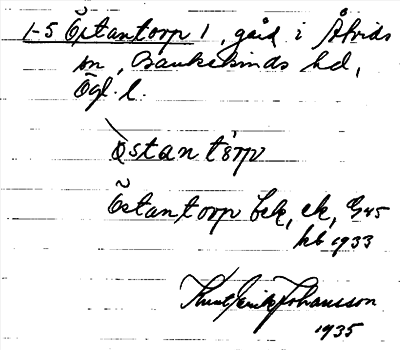 1-5 Östantorp 1, gård i Åtvids
sn, Bankekinds hd,
Ögl. l.
Östantorp
Östantorp bek, ek, G45
kb 1933
Knut Erik Johansson
1935